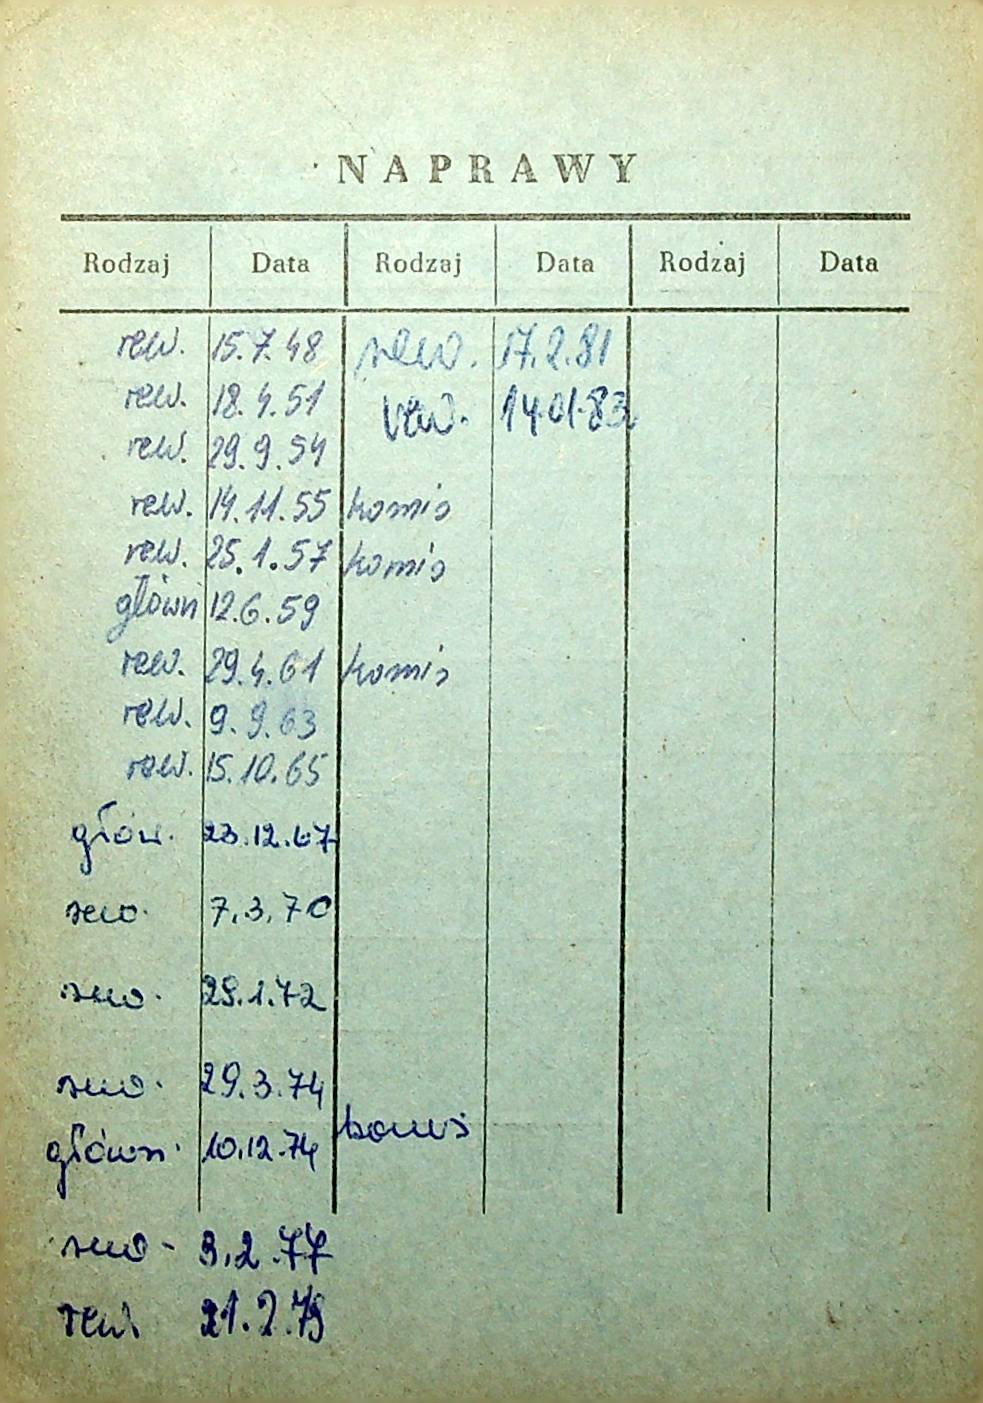 NAPRAWY
Rodzaj Data Rodzaj Data Rodzaj Data
rew. 15.7.48 rew. 17.2.81
rew. 18.4.51 rew. 14.01.83
rew. 29.9.54
rew. 14.11.55 komis
rew. 25.1.57 komis
główn 12.6.59
rew. 29.4.61 komis
rew. 9.9.63
rew. 15.10.65
głów. 23.12.67
rew. 7.3.70
rew. 29.1.72
rew. 29.3.74
główn. 10.12.74 komis
rew- 3.2.77
rew. 21.2.79